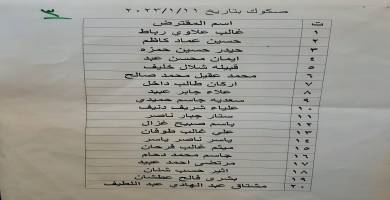 ٣
صكوك بتاريخ ٢٠٢٢/١/١١
ت اسم المقترض
١ غالب علاوي رباط
٢ حسين عماد كاظم
٣ حيدر حسين حمزه
٤ ايمان محسن عبد
٥ فضيله شلال خليف
٦ محمد عقيل محمد صالح
٧ اركان طالب داخل
٨ علاء جابر عبيد
٩ سعديه جاسم حميدي
١٠ علياء شريف دنيف
١١ ستار جبار ناصر
١٢ باسم صبيح غزال
١٣ علي غالب طوفان
١٤ ياسر ناصر ياسر
١٥ ميثم غالب فرحان
١٦ جاسم محمد دحام
١٧ مرتضى احمد عبيد
١٨ اثير حسب شنان
١٩ بشرى فالح عطشان
٢٠ مشتاق عبد الهادي عبد اللطيف